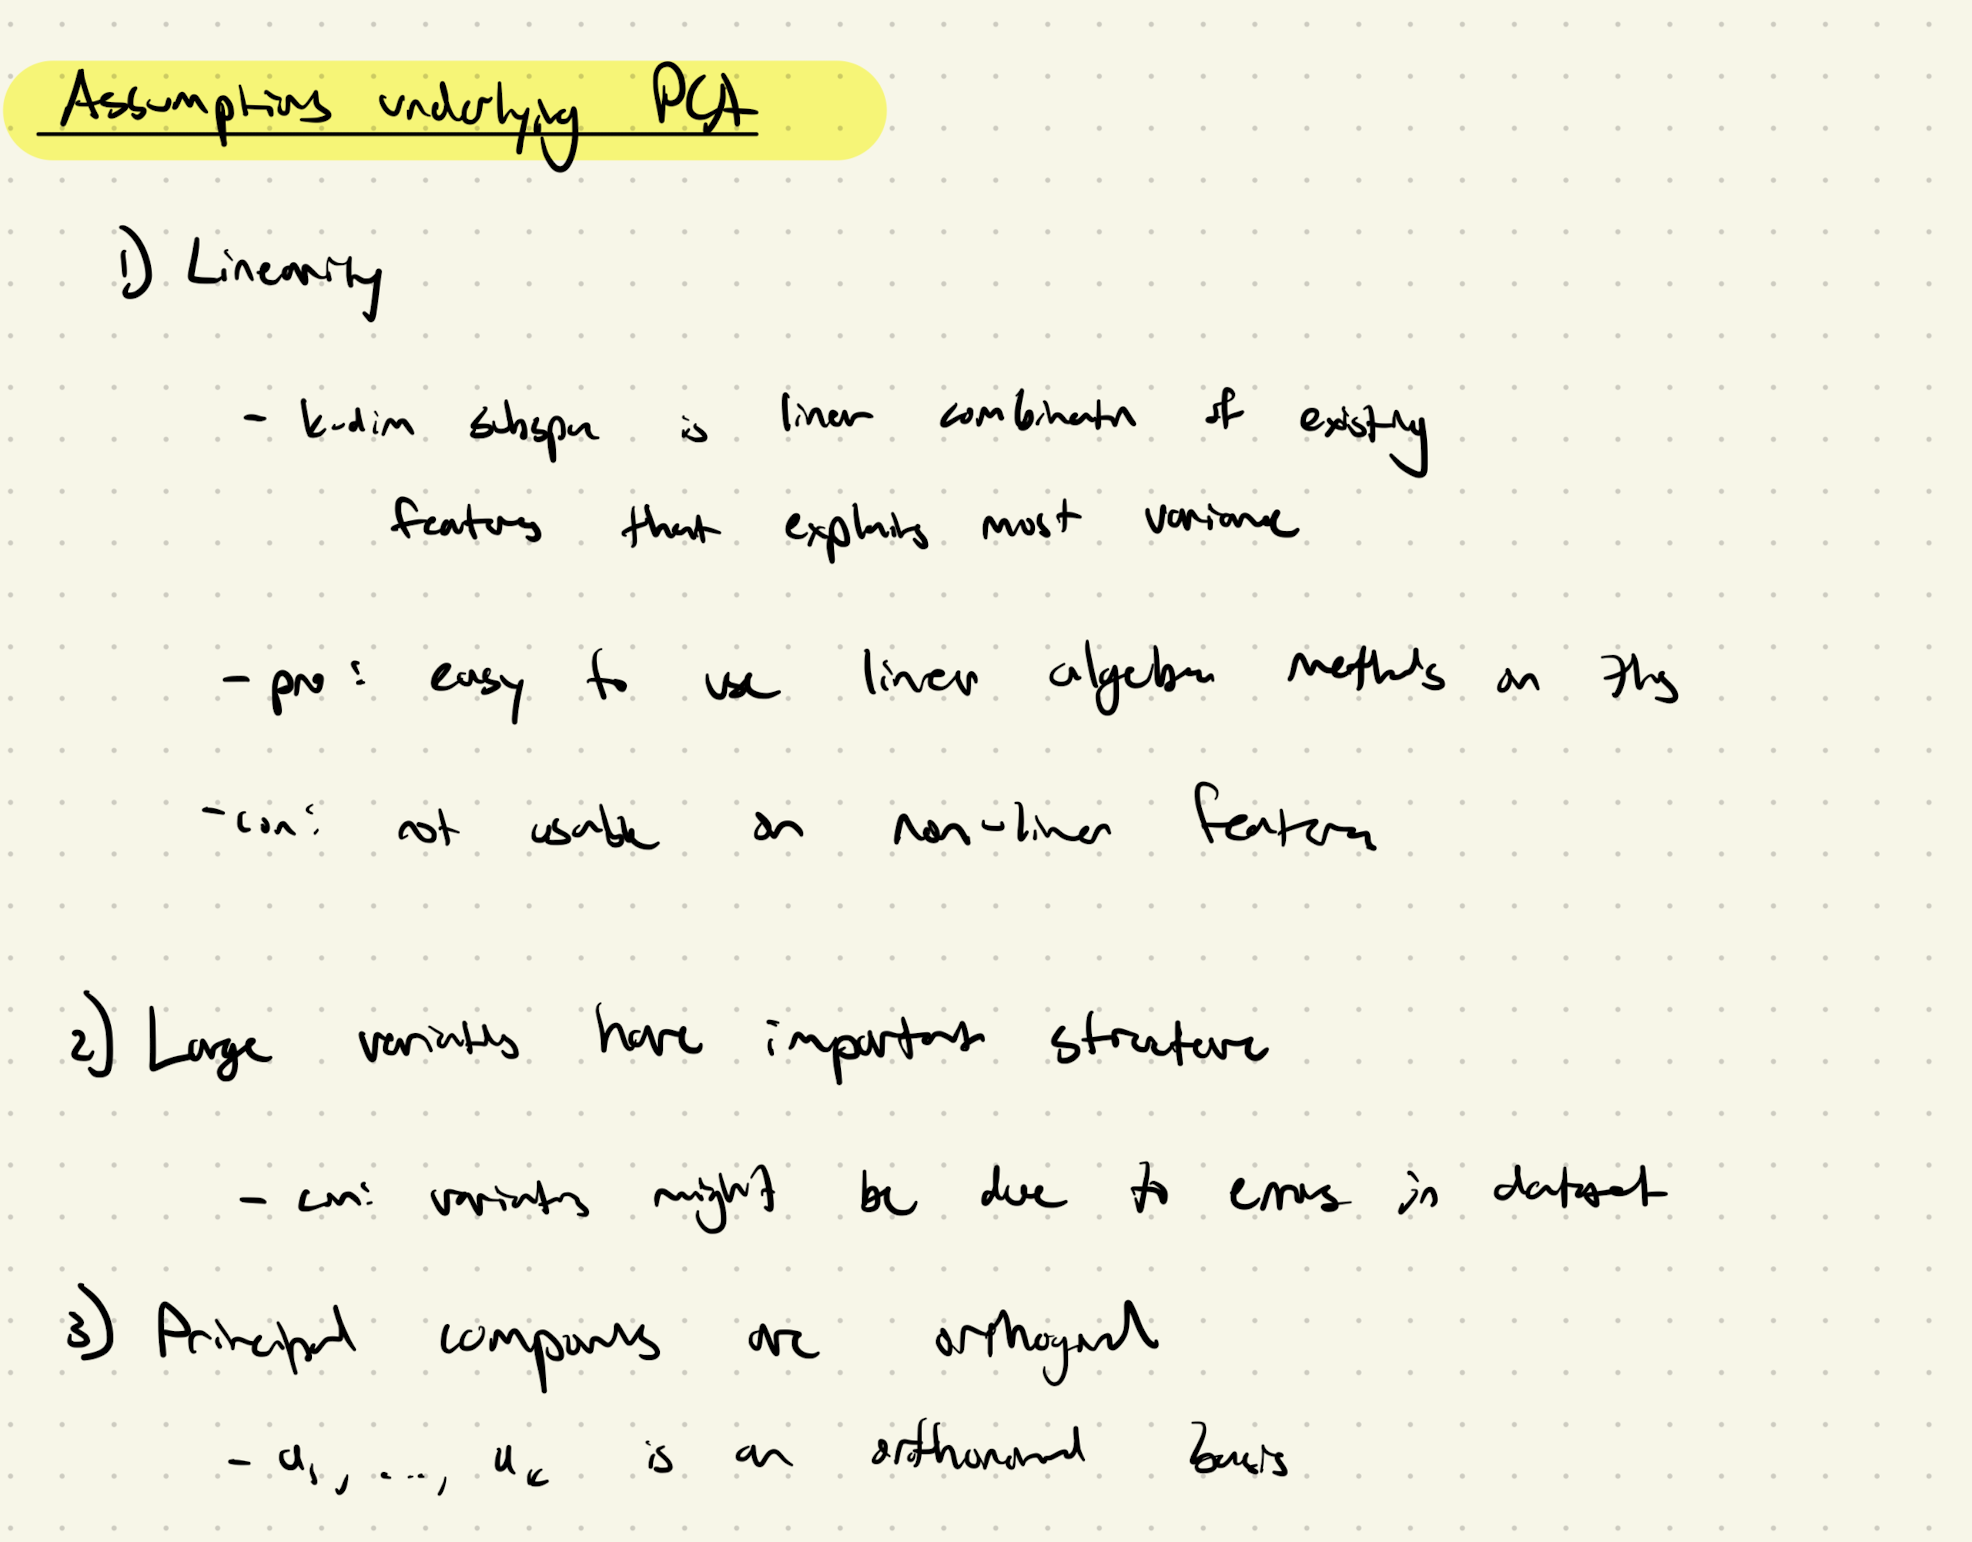 Assumptions underlying PCA
1) Linearity
- k-dim subspace is linear combination of existing
features that explains most variance
- pro: easy to use linear algebra methods on this
- con: not usable on non-linear features
2) Large variations have important structure
- con: variations might be due to errors in dataset
3) Principal components are orthogonal
- u₁, ..., uₖ is an orthonormal basis